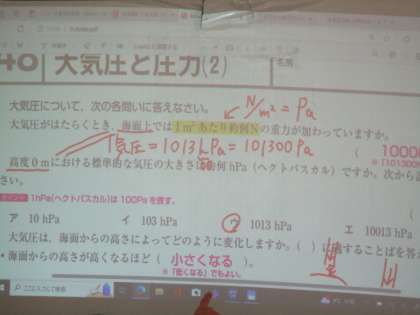 40 大気圧と圧力(2)
名前
N/m² = Pa
大気圧について、次の各問いに答えなさい。
大気圧がはたらくとき、海面上では1m²あたり約何Nの重力が加わっていますか。
気圧 = 1013hPa = 101300Pa
高度0mにおける標準的な気圧の大きさは約何hPa(ヘクトパスカル)ですか。次から
さい。
1hPa(ヘクトパスカル)は100Paを表す。
ア 10 hPa イ 103 hPa ウ 1013 hPa エ 10013 hPa
大気圧は、海面からの高さによってどのように変化しますか。( )に
することばを答
・海面からの高さが高くなるほど( 小さくなる )。
※「低くなる」でもよい。
ここに入力して検索